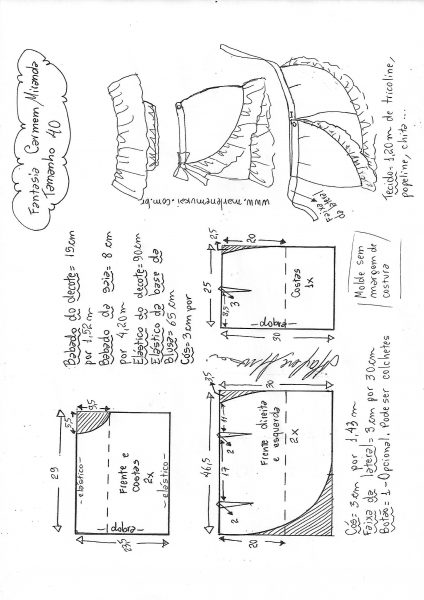 Fantasia Carmem Miranda
Tamanho 40
www.marlenemukai.com.br
Faixa
da lateral
Tecido = 1,20m de tricoline,
popeline, chita...
Babado do decote = 15cm
por 1,52m
Babado da saia = 8 cm
por 4,20m
Elástico do decote = 90cm
Elástico da base da
Blusa = 65 cm
Cós = 3 cm por
2,5
20
25
8,5
3
Costas
1x
dobra
30
Molde sem
margem de
costura
29
5,5
9,5
elástico
Frente e
costas
2x
elástico
dobra
23,5
3,5
30
46,5
11
17
2
2
Frente direita
e esquerda
2x
20
Cós = 3 cm por 1,43 m
Faixa da lateral = 3 cm por 30 cm
Botão = 1 - Opcional. Pode ser colchetes